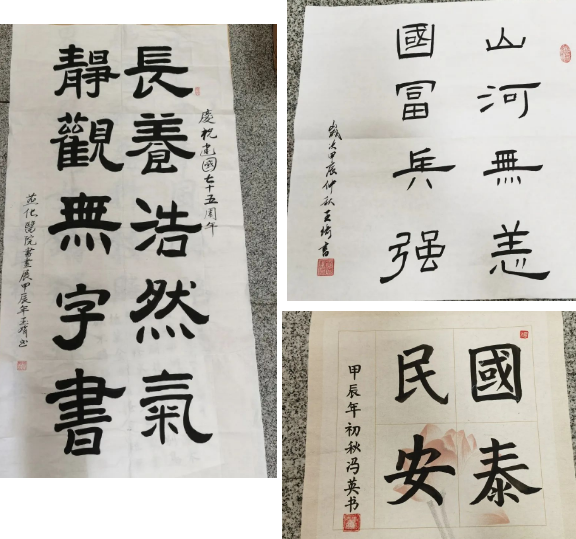 慶祝建國七十五周年
長養浩然氣
靜觀無字書
燕化醫院書畫展甲辰年王琦书
山河無恙
國富兵强
歲次甲辰仲秋王琦書
國泰
民安
甲辰年初秋冯英书